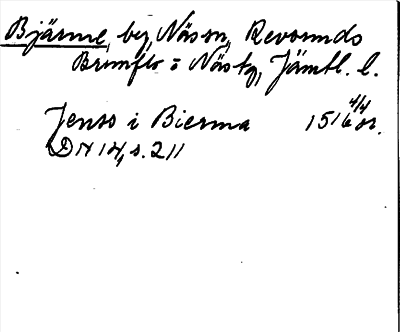 Bjärme, by, Näson, Revsunds
Brunflo o Näs tg, Jämtl. l.
Jenss i Bierma 1516 4/4 or.
DN 14, s. 211